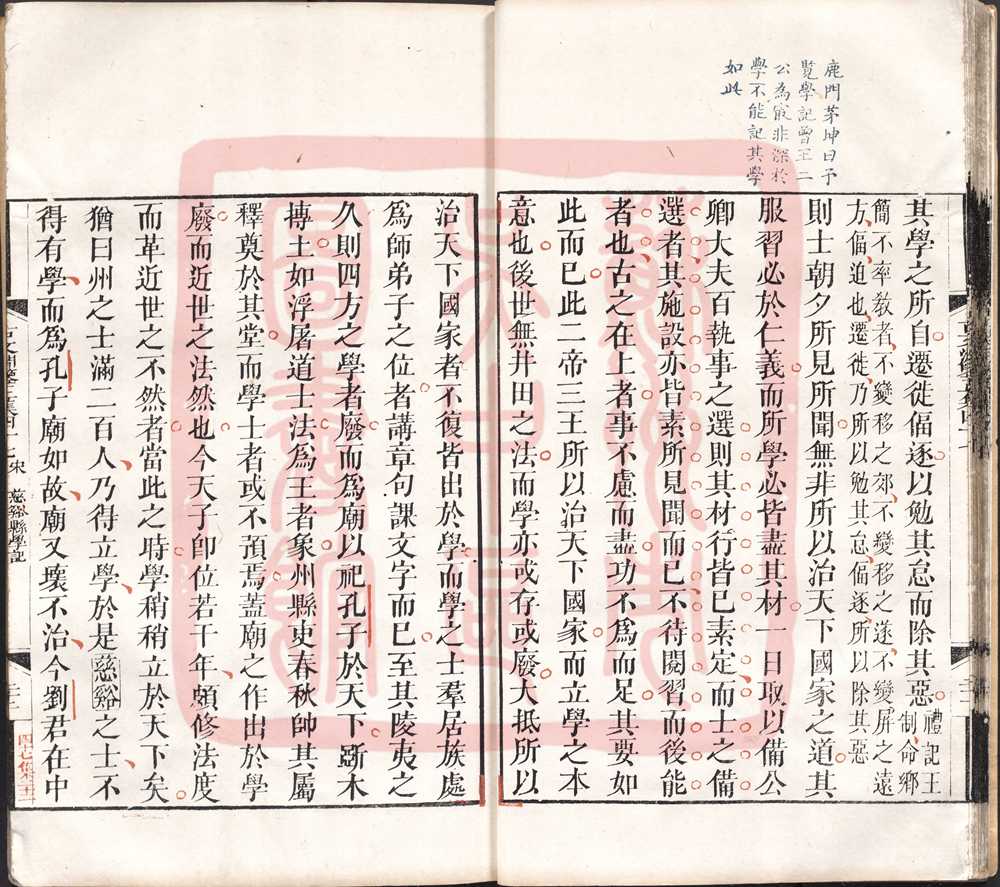 鹿門茅坤曰予
覽學記曾王二
公為最非深於
學不能記其學
如此
其學之所自遷徙偪逐以勉其怠而除其惡
禮記王
制命鄉
簡不率教者不變移之郊不變移之遂不變屏之遠
方偪迫也遷徙乃所以勉其怠偪逐所以除其惡
則士朝夕所見所聞無非所以治天下國家之道其
服習必於仁義而所學必皆盡其材一日取以備公
卿大夫百執事之選則其材行皆已素定而士之備
選者其施設亦皆素所見聞而已不待閱習而後能
者也古之在上者事不慮而盡功不爲而足其要如
此而已此二帝三王所以治天下國家而立學之本
意也後世無井田之法而學亦或存或廢大抵所以
治天下國家者不復皆出於學而學之士羣居族處
爲師弟子之位者講章句課文字而已至其陵夷之
久則四方之學者廢而爲廟以祀孔子於天下斵木
摶土如浮屠道士法爲王者象州縣吏春秋帥其屬
釋奠於其堂而學士者或不預焉蓋廟之作出於學
廢而近世之法然也今天子卽位若干年頗修法度
而革近世之不然者當此之時學稍稍立於天下矣
猶曰州之士滿二百人乃得立學於是慈谿之士不
得有學而爲孔子廟如故廟又壞不治今劉君在中
宋
慈谿縣學記
四七集